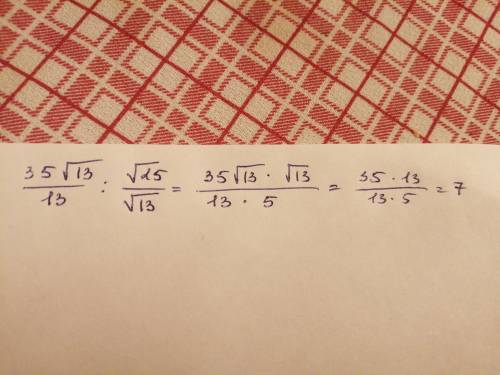 35√13/13 : √25/√13 = 35√13 · √13/13 · 5 = 35 · 13/13 · 5 = 7